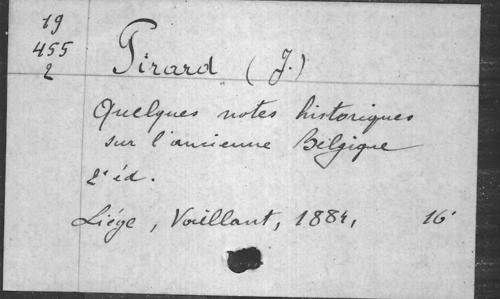 19
455
2
Pirard (J.)
Quelques notes historiques
sur l'ancienne Belgique
2e éd.
Liége, Vaillant, 1884, 16°